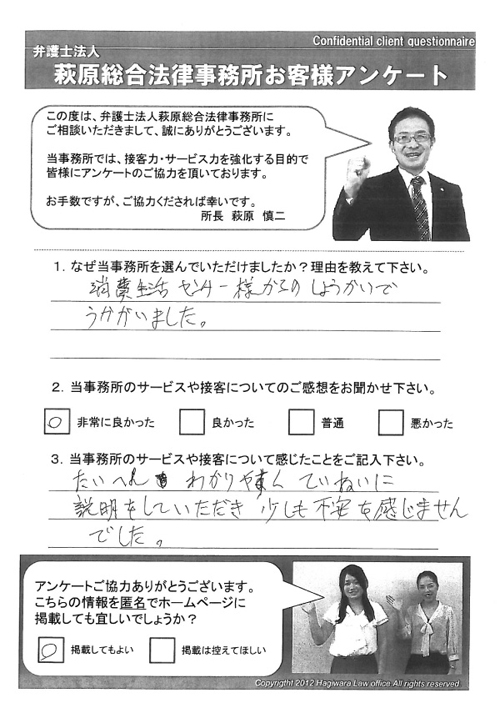 Confidential client questionnaire
弁護士法人
萩原総合法律事務所お客様アンケート
この度は、弁護士法人萩原総合法律事務所に
ご相談いただきまして、誠にありがとうございます。
当事務所では、接客力・サービス力を強化する目的で
皆様にアンケートのご協力を頂いております。
お手数ですが、ご協力くだされば幸いです。
所長 萩原 慎二
1．なぜ当事務所を選んでいただけましたか？理由を教えて下さい。
消費生活センター様からの しょうかいで
うかがいました。
2．当事務所のサービスや接客についてのご感想をお聞かせ下さい。
非常に良かった 良かった 普通 悪かった
3．当事務所のサービスや接客について感じたことをご記入下さい。
たいへん わかりやすく ていねいに
説明をしていただき 少しも不安を感じません
でした。
アンケートご協力ありがとうございます。
こちらの情報を匿名でホームページに
掲載しても宜しいでしょうか？
掲載してもよい 掲載は控えてほしい
Copyright 2012 Hagiwara Law office.All rights reserved